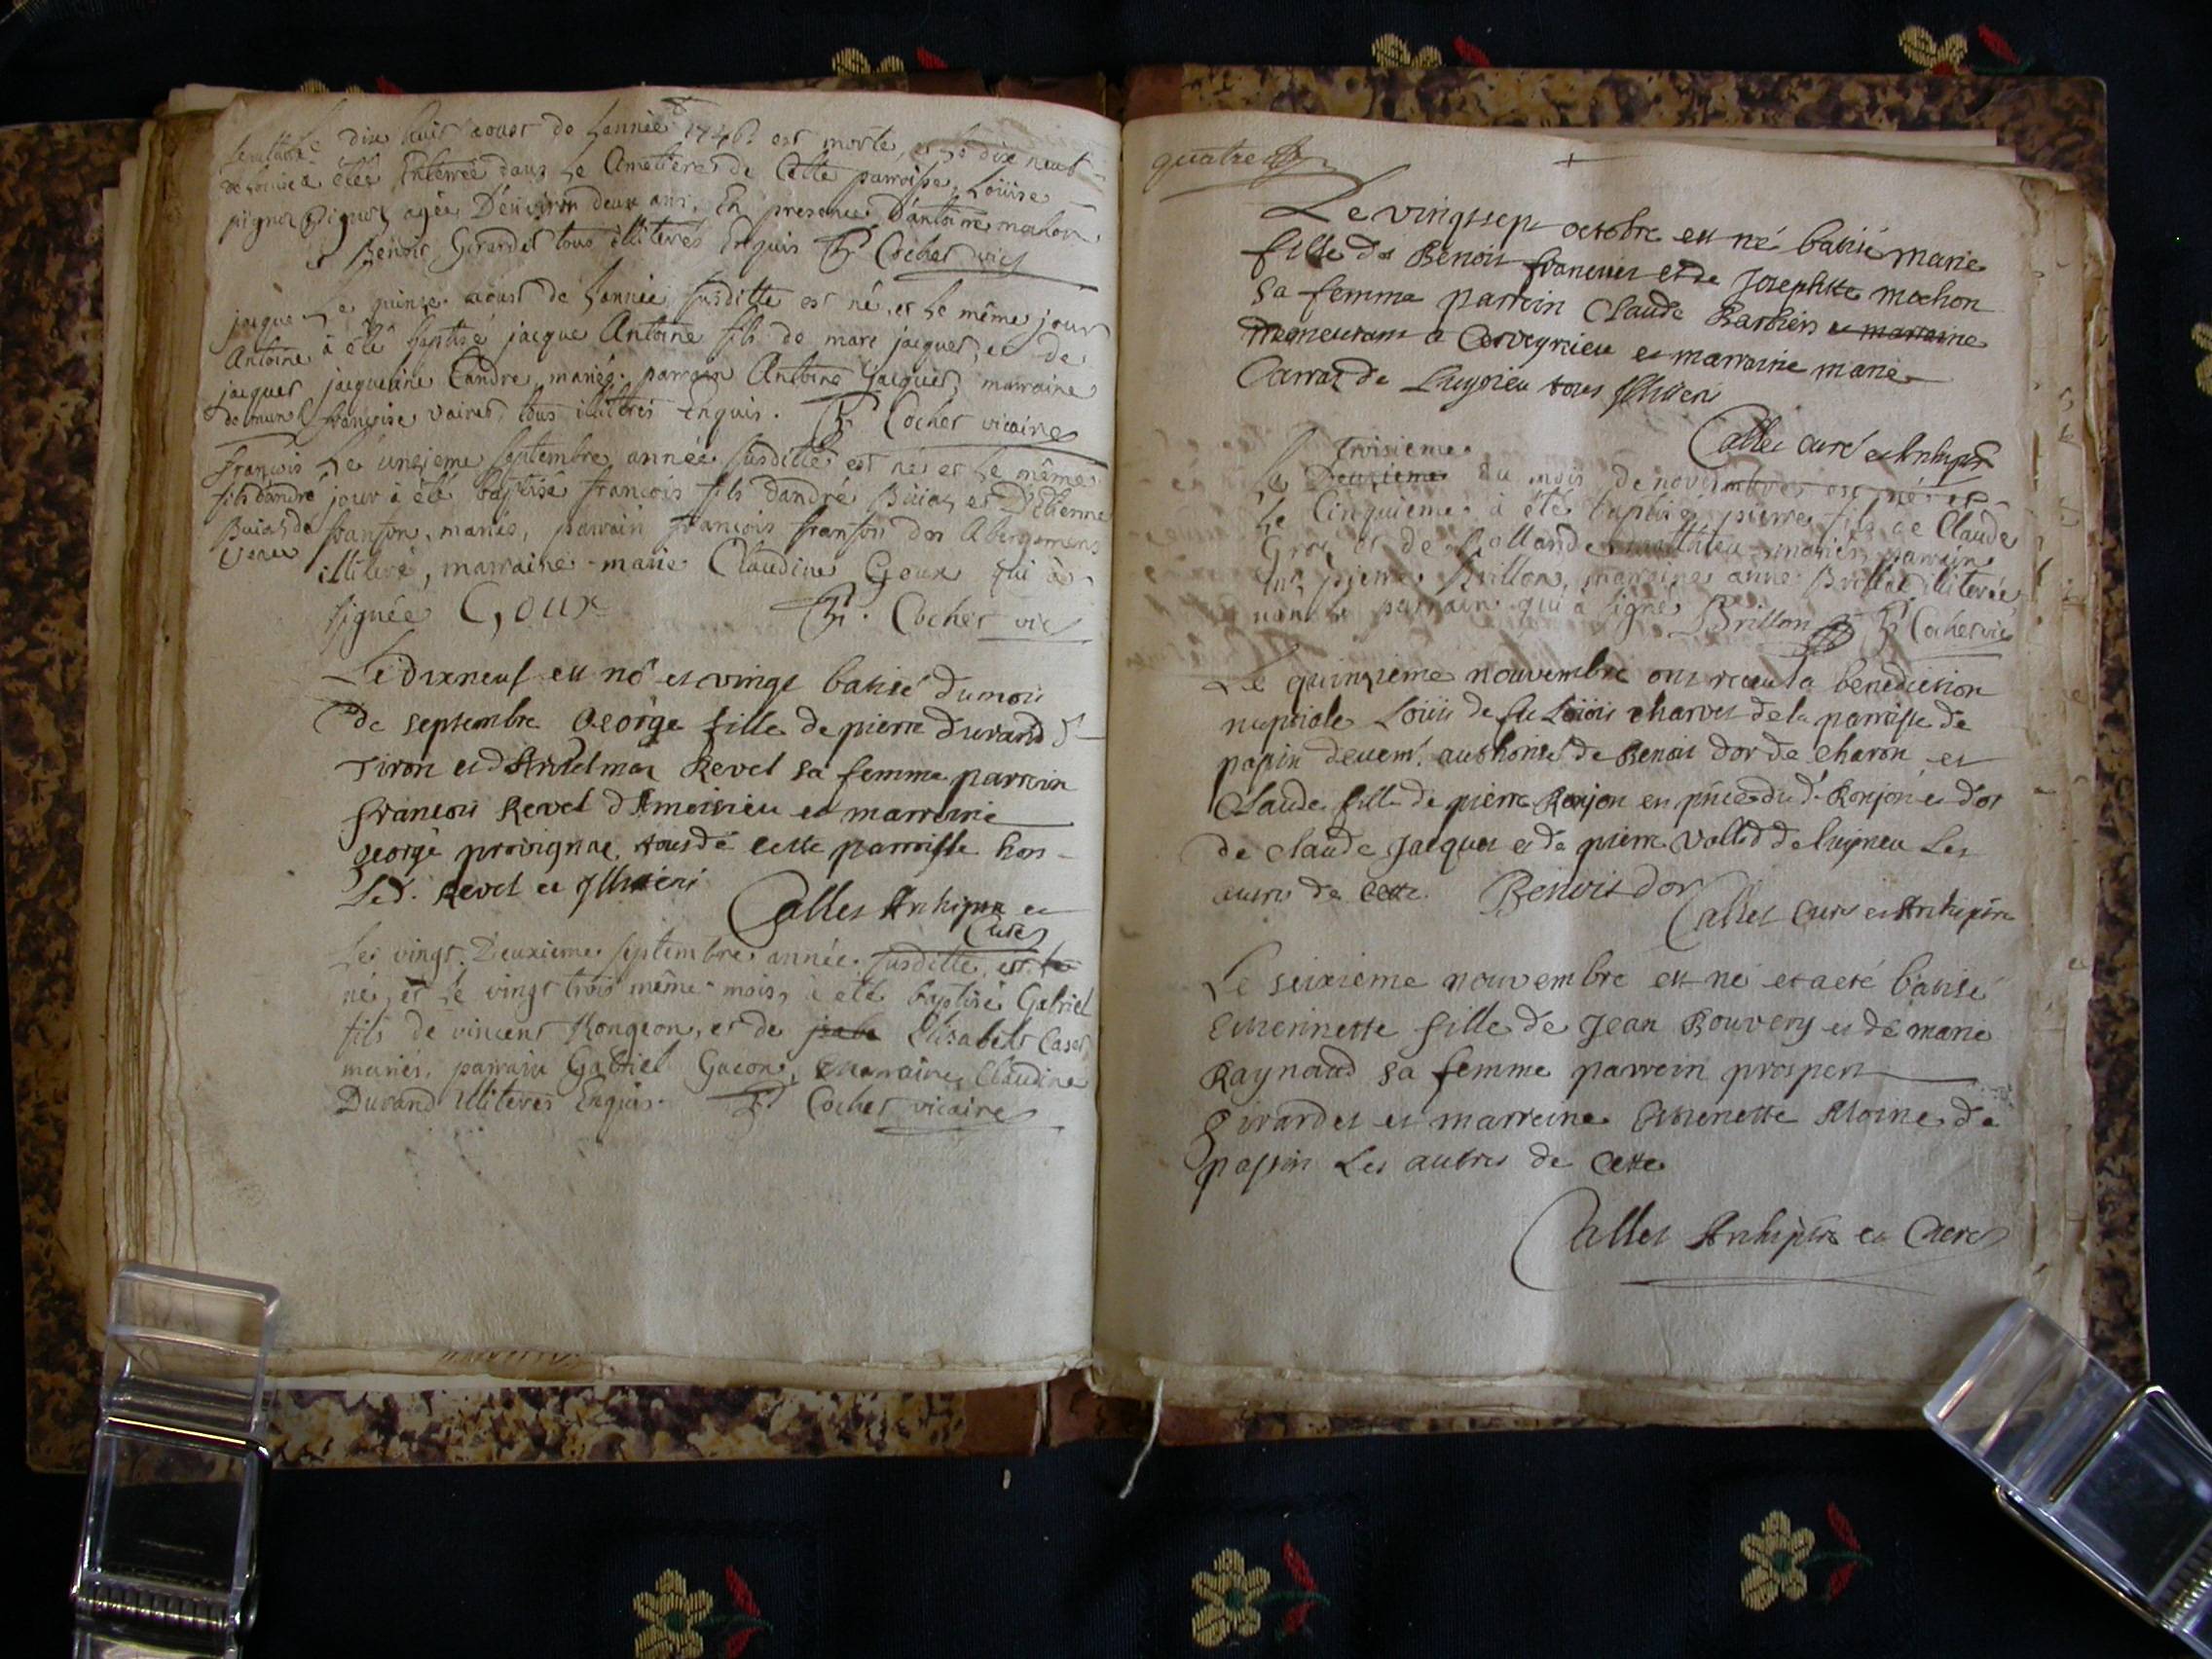 dix huit aoust de Lannée 1746 est morte, et Le dix neuf
à étée Enterrée dans Le Cimetiere de Cette parroisse, Loüise
pignol agée D'environ deux ans, En presence D'antoine mochon
et Benoit Girardet tous illiteres Enquis Cochet vic
jacque Le quinze aoust de Lannée susditte est né, et Le même jour
Antoine à été baptisé jacque Antoine fils de marc jacquet, et de
jacquet jacqueline Landre mariés. parrain Antoine Jacquet, marraine
françoise vairet, tous illiterés Enquis. Cochet vicaire
François Le unzieme septembre année susditte est né et Le même
fils dandré jour à été baptisé francois fils dandré Bujas et D'Etienne
franson, mariés, parrain francois franson des Abergemens
illiteré, marraine marie Claudine Goux qui à
signée Goux Cochet vic
Le dixneuf est né et vingt batisé du mois
de septembre George fille de pierre durand
Tiron et d'Antelmaz Revel sa femme parrein
francois Revel d'Ameisieu et marreine
george provignne tous de cette parroisse hors
Led. Revel et Illiteri
Callet Archiptre et
Curé
Le vingt Deuxieme septembre année susditte, est
né, et Le vingt trois même mois, à été baptisé Gabriel
fils de vincent Rongeon, et de Elisabeth Caset
mariés, parrain Gabriel Gacon, marraine Claudine
Durand illiterés Enquis. Cochet vicaire
quatre
Le vingtsept octobre est né batisé marie
fille de Benoit francillet et de Josephte mochon
sa femme parrein Claude Barbier et marraine
demeurant a Cerveyrieu et marraine marie
Carrat de Luyrieu tous Illiteri
Callet curé et Archiptr
troisieme
Le Deuzieme du mois de novembre est né et
Le Cinquieme à été baptisé pierre fils de Claude
Gros et de Mathieu mariés, parrain
mr pierre Brillon, marraine anne Brillat illiterée,
non Le parrain qui à signé Brillon Cochet vic
Le quinzieme nouvembre ont receu la benediction
nuptiale Loüis de feu Loüis charvet de la parroisse de
passin devem. authorisé de Benoit dor de charon et
Claude fille de pierre Ronjon en pnce du d. Ronjon et dor
de claude Jacquet et de pierre Vollet de luyrieu Les
autre de cette. Benoit dor
Callet Curé et Archiptre
Le seixieme nouvembre est né et a eté batisé
Etiennette fille de Jean Bouvery et de marie
Raynaud sa femme parrein prosper
Girardet et marreine Etiennette Moine de
passin Les autres de cette
Callet Archiptre et Curé